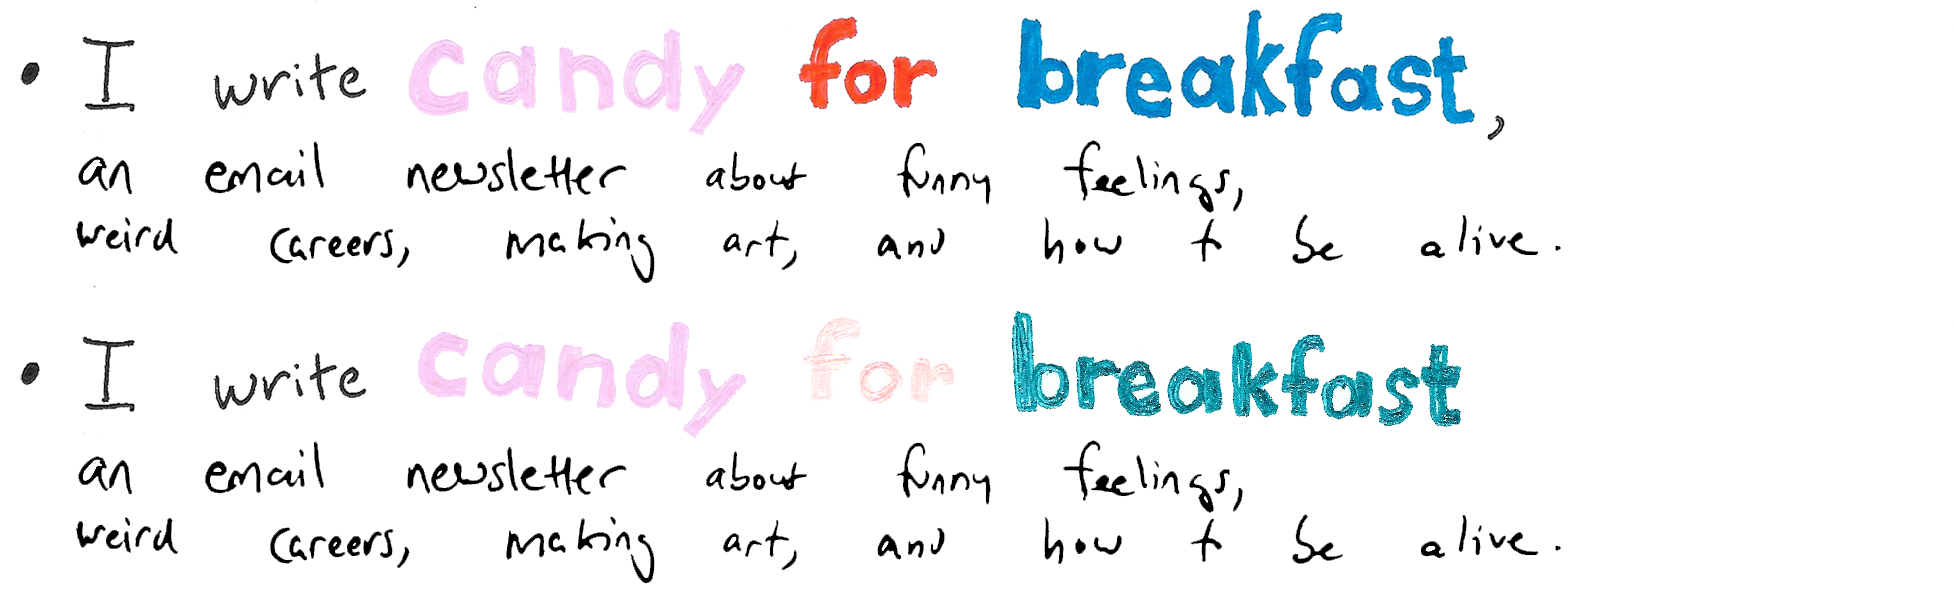 • I write candy for breakfast,
an email newsletter about funny feelings,
weird careers, making art, and how to be alive.
• I write candy for breakfast
an email newsletter about funny feelings,
weird careers, making art, and how to be alive.